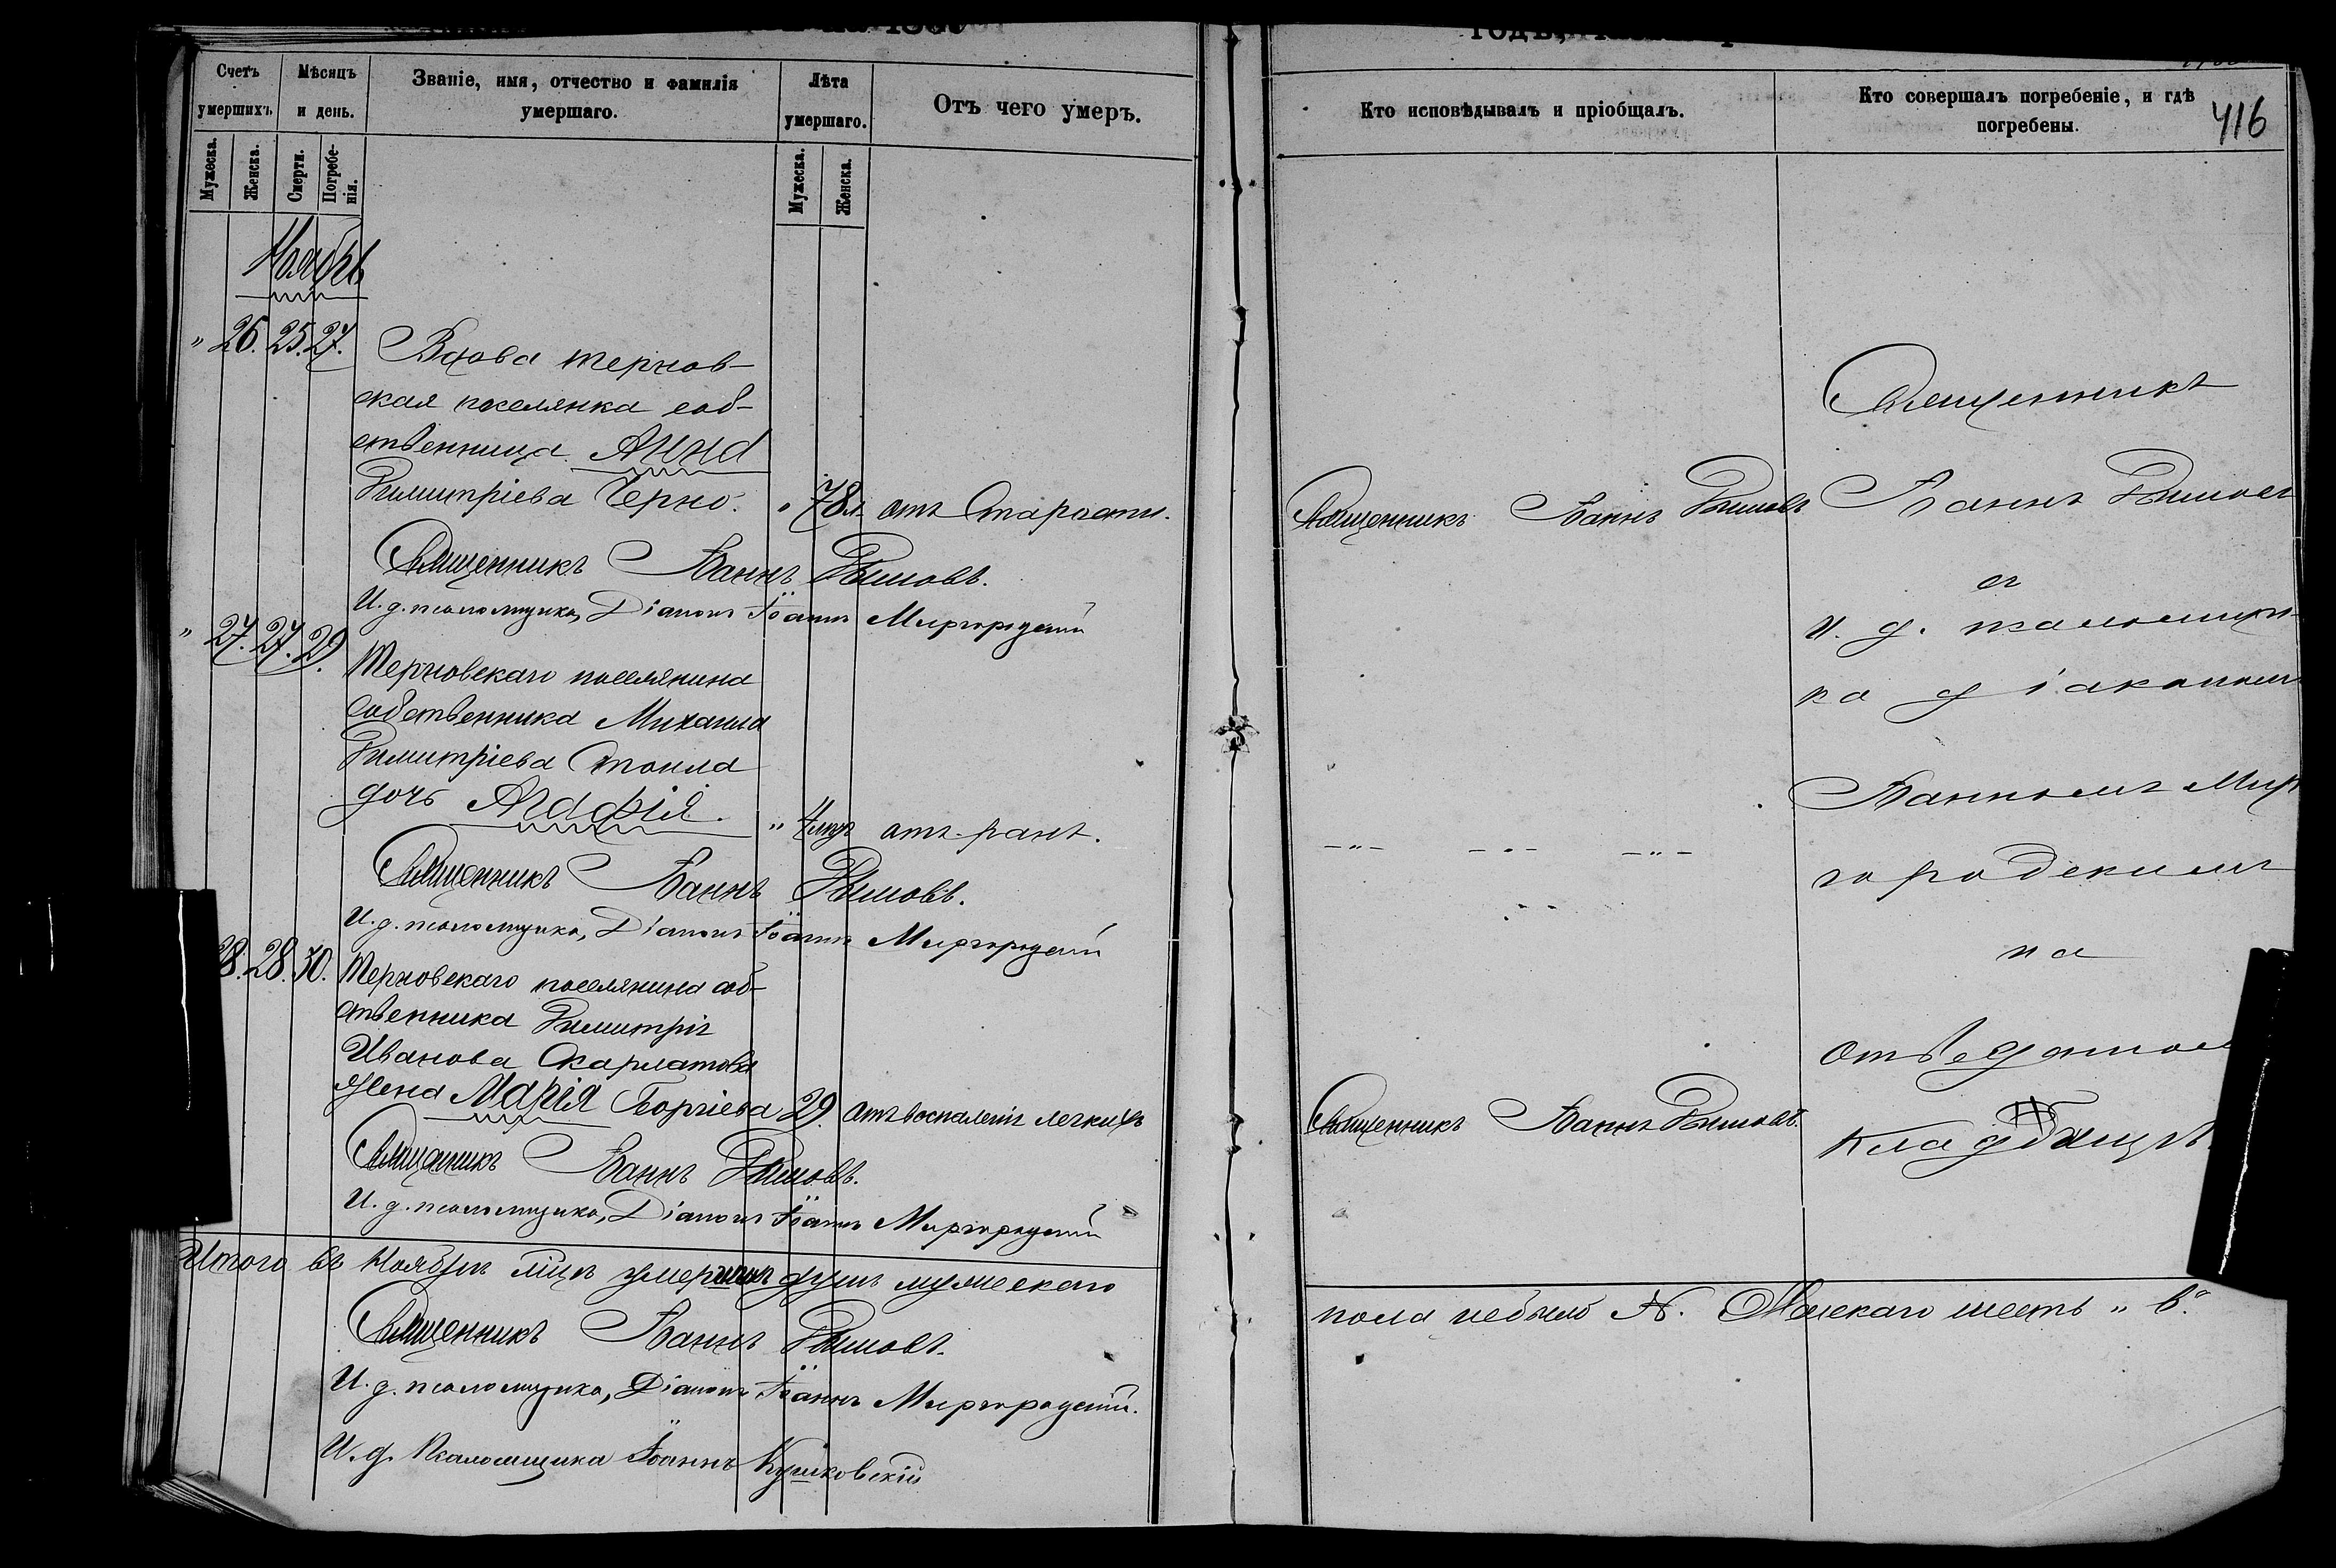 416
Счетъ умершихъ.
Мѣсяцъ и день.
Званіе, имя, отчество и фамилія умершаго.
Лѣта умершаго.
Отъ чего умеръ.
Кто исповѣдывалъ и пріобщалъ.
Кто совершалъ погребеніе, и гдѣ погребены.
Мужеска.
Женска.
Смерти.
Погребенія.
Мужеска.
Женска.
Ноябрь
" 26. 25. 27.
Вдова тернов-
ская поселянка соб-
ственница Анна
Димитріева Черно. " 78 л. отъ старости.
Священникъ Іоаннъ Димовъ
Священникъ Іоаннъ Димовъ.
И. д. псаломщика, Діаконъ Іоаннъ Миргородскій
" 27. 27. 29.
Терновскаго поселянина
собственника Михаила
Димитріева Стоила
дочь Агафія. " отъ ранъ.
Священникъ Іоаннъ Димовъ.
И. д. псаломщика, Діаконъ Іоаннъ Миргородскій
28. 28. 30.
Терновскаго поселянина соб-
ственника Димитрія
Иванова Скарлатова
жена Марія Георгіева 29. отъ воспаленія легкихъ
Священникъ Іоаннъ Димовъ.
Священникъ Іоаннъ Димовъ.
И. д. псаломщика, Діаконъ Іоаннъ Миргородскій
Священникъ
Іоаннъ Димовъ
съ
и. д. псаломщи-
ка діакономъ
Іоанномъ Мир
городскимъ
на
отведенномъ
кладбищѣ.
Итого въ Ноябрѣ мцѣ умершихъ душъ мужескаго
пола небыло №. Женскаго шесть " 6."
Священникъ Іоаннъ Димовъ.
И. д. псаломщика, Діаконъ Іоаннъ Миргородскій.
И. д. Псаломщика Іоаннъ Кушковскій